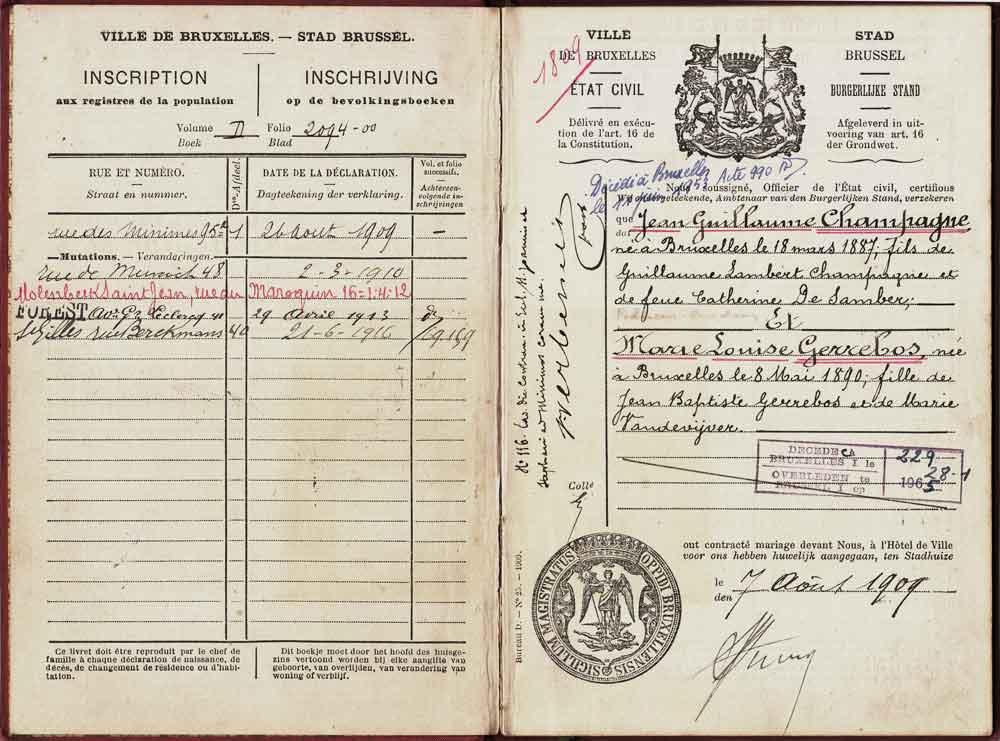 VILLE DE BRUXELLES. — STAD BRUSSEL.
INSCRIPTION
aux registres de la population
INSCHRIJVING
op de bevolkingsboeken
Volume II Folio 2094-00
Boek Blad
RUE ET NUMÉRO.
Straat en nummer.
Don Afdeel.
DATE DE LA DÉCLARATION.
Dagteekening der verklaring.
Vol. et folio
successifs.
Achtereen-
volgende in-
schrijvingen
rue des Minimes 95 1 26 août 1909 —
—Mutations. — Veranderingen.—
rue de 48 2-3-1910
Molenbeek Saint Jean, rue du Maroquin 16=1:4:12
FOREST Av. Leclercq 41 29 avril 1913
St Gilles rue Berckmans 40 21-6-1916
Ce livret doit être reproduit par le chef de
famille à chaque déclaration de naissance, de
décès, de changement de résidence ou d'habi-
tation.
Dit boekje moet door het hoofd des huisge-
zins vertoond worden bij elke aangifte van
geboorte, van overlijden, van verandering van
woning of verblijf.
VILLE
DE BRUXELLES
ÉTAT CIVIL
Délivré en exécu-
tion de l'art. 16 de
la Constitution.
1809
STAD
BRUSSEL
BURGERLIJKE STAND
Afgeleverd in uit-
voering van art. 16
der Grondwet.
Décédé à Bruxelles
le juin 1953 Acte 990
Nous soussigné, Officier de l'État civil, certifions
Wij ondergeteekende, Ambtenaar van den Burgerlijken Stand, verzekeren
que Jean Guillaume Champagne
dat
né à Bruxelles le 18 mars 1887, fils de
Guillaume Lambert Champagne et
de feue Catherine De Samber;
Et
Marie Louise Gerrebos, née
à Bruxelles le 8 Mai 1890; fille de
Jean Baptiste Gerrebos et de Marie
Vandevijver.
DECEDE A
BRUXELLES I le
OVERLEDEN te
BRUSSEL I op
229
28-1
1965
Colle
ont contracté mariage devant Nous, à l'Hôtel de Ville
voor ons hebben huwelijk aangegaan, ten Stadhuize
le 7 Août 1909
den
Bureau D. — N° 25. — 1909.
SIGILLUM MAGISTRATUS OPPIDI BRUXELLENSIS